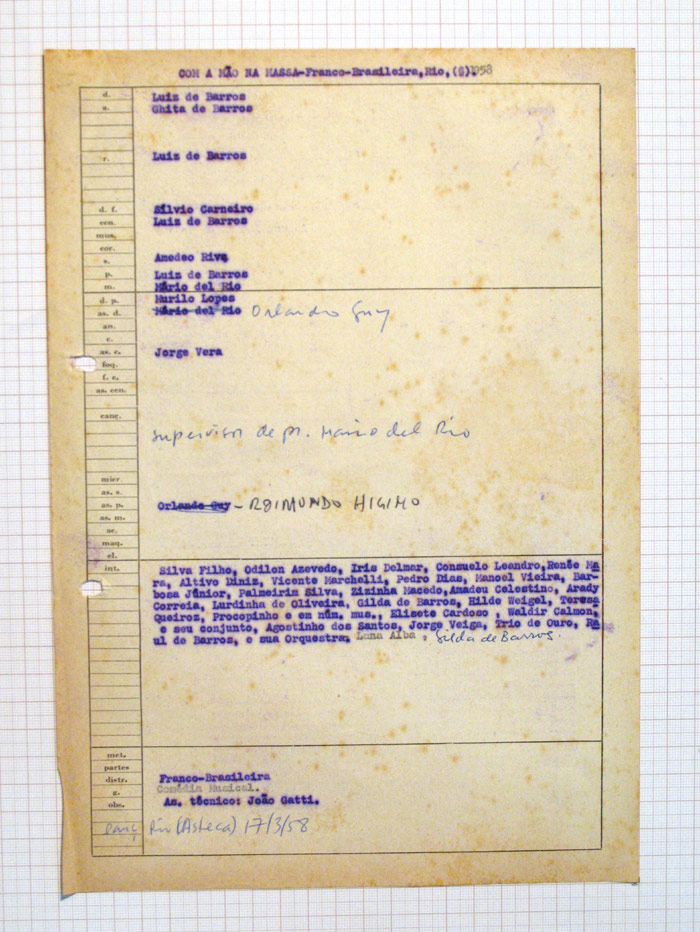 COM A MÃO NA MASSA-Franco-Brasileira,Rio,(6).1958
d. Luiz de Barros
a. Ghita de Barros
r. Luiz de Barros
d. f. Sílvio Carneiro
cen. Luiz de Barros
mus.
cor.
s. Amedeo Riva
p. Luiz de Barros
m. Mário del Rio
d. p. Murilo Lopes
as. d. Mário del Rio Orlando Guy
an.
c.
as. c. Jorge Vera
foq.
f. c.
as. cen.
canç.
supervisor de pr. Mario del Rio
micr.
as. s.
as. p. Orlando Guy - RAIMUNDO HIGINO
as. m.
ac.
maq.
el.
int. Silva Filho, Odilon Azevedo, Iris Delmar, Consuelo Leandro,Renée Ma
ra, Altivo Diniz, Vicente Marchelli, Pedro Dias, Manoel Vieira, Bar-
bosa Júnior, Palmeirim Silva, Zizinha Macedo,Amadeu Celestino, Arady
Correia, Lurdinha de Oliveira, Gilda de Barros, Hilde Weigel, Teresa
Queiroz, Procopinho e en núm. mus., Elisete Cardoso , Waldir Calmon,
e seu conjunto, Agostinho dos Santos, Jorge Veiga, Trio de Ouro, Ra
ul de Barros, e sua Orquestra. Lana Alba . Gilda de Barros.
met.
partes
distr. Franco-Brasileira
g. Comédia Musical.
obs. As. técnico: João Gatti.
lanç Rio (Asteca) 17/3/58